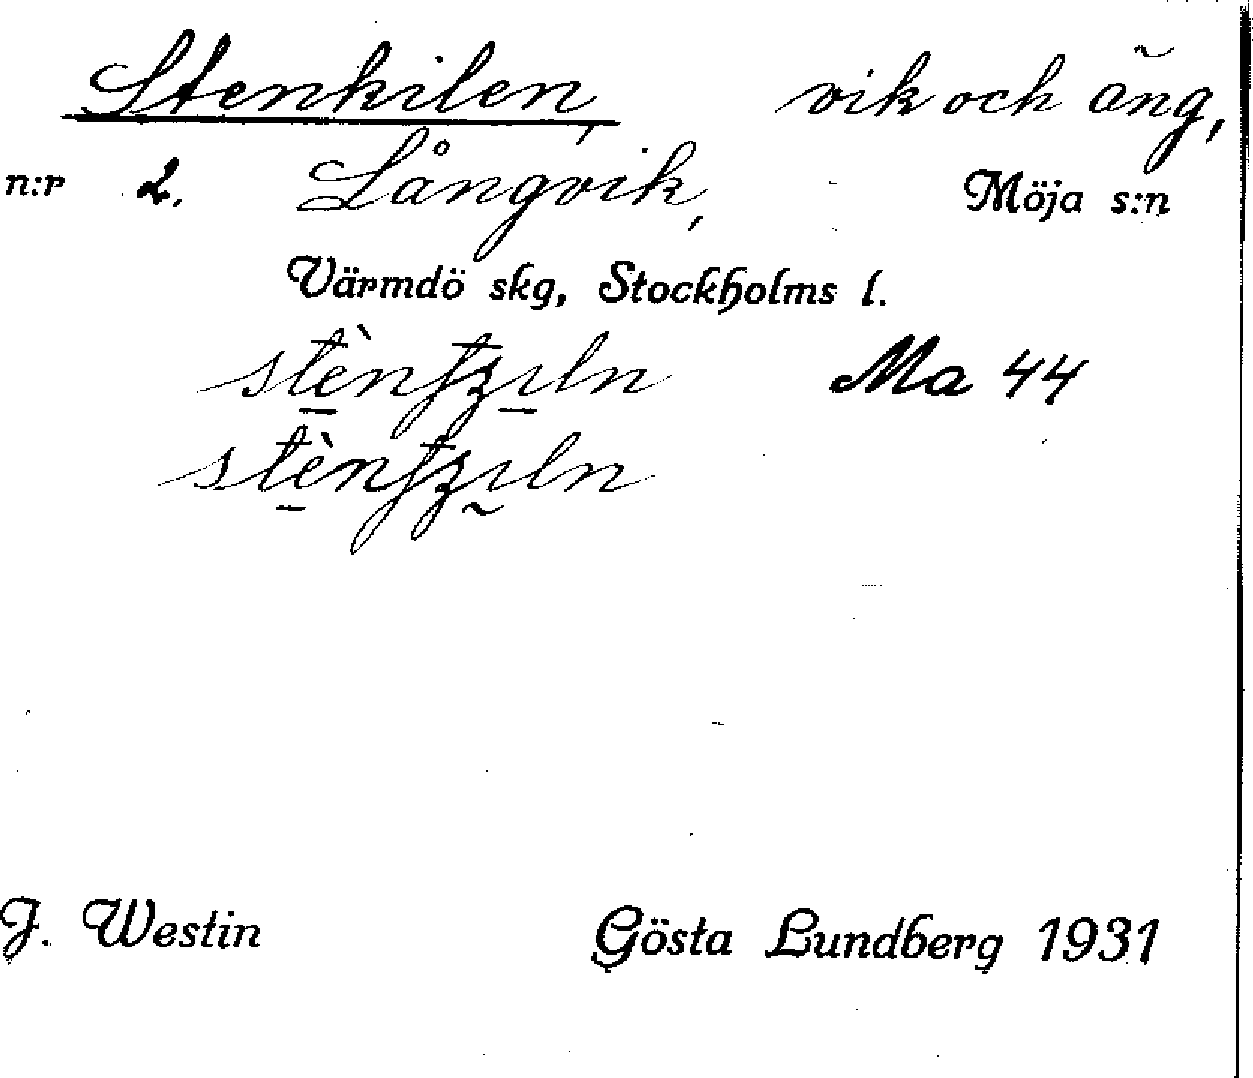 Stenkilen, vik och äng,
n:r 2. Långvik, Möja s:n
Värmdö skg, Stockholms l.
Ma 44
J. Westin Gösta Lundberg 1931